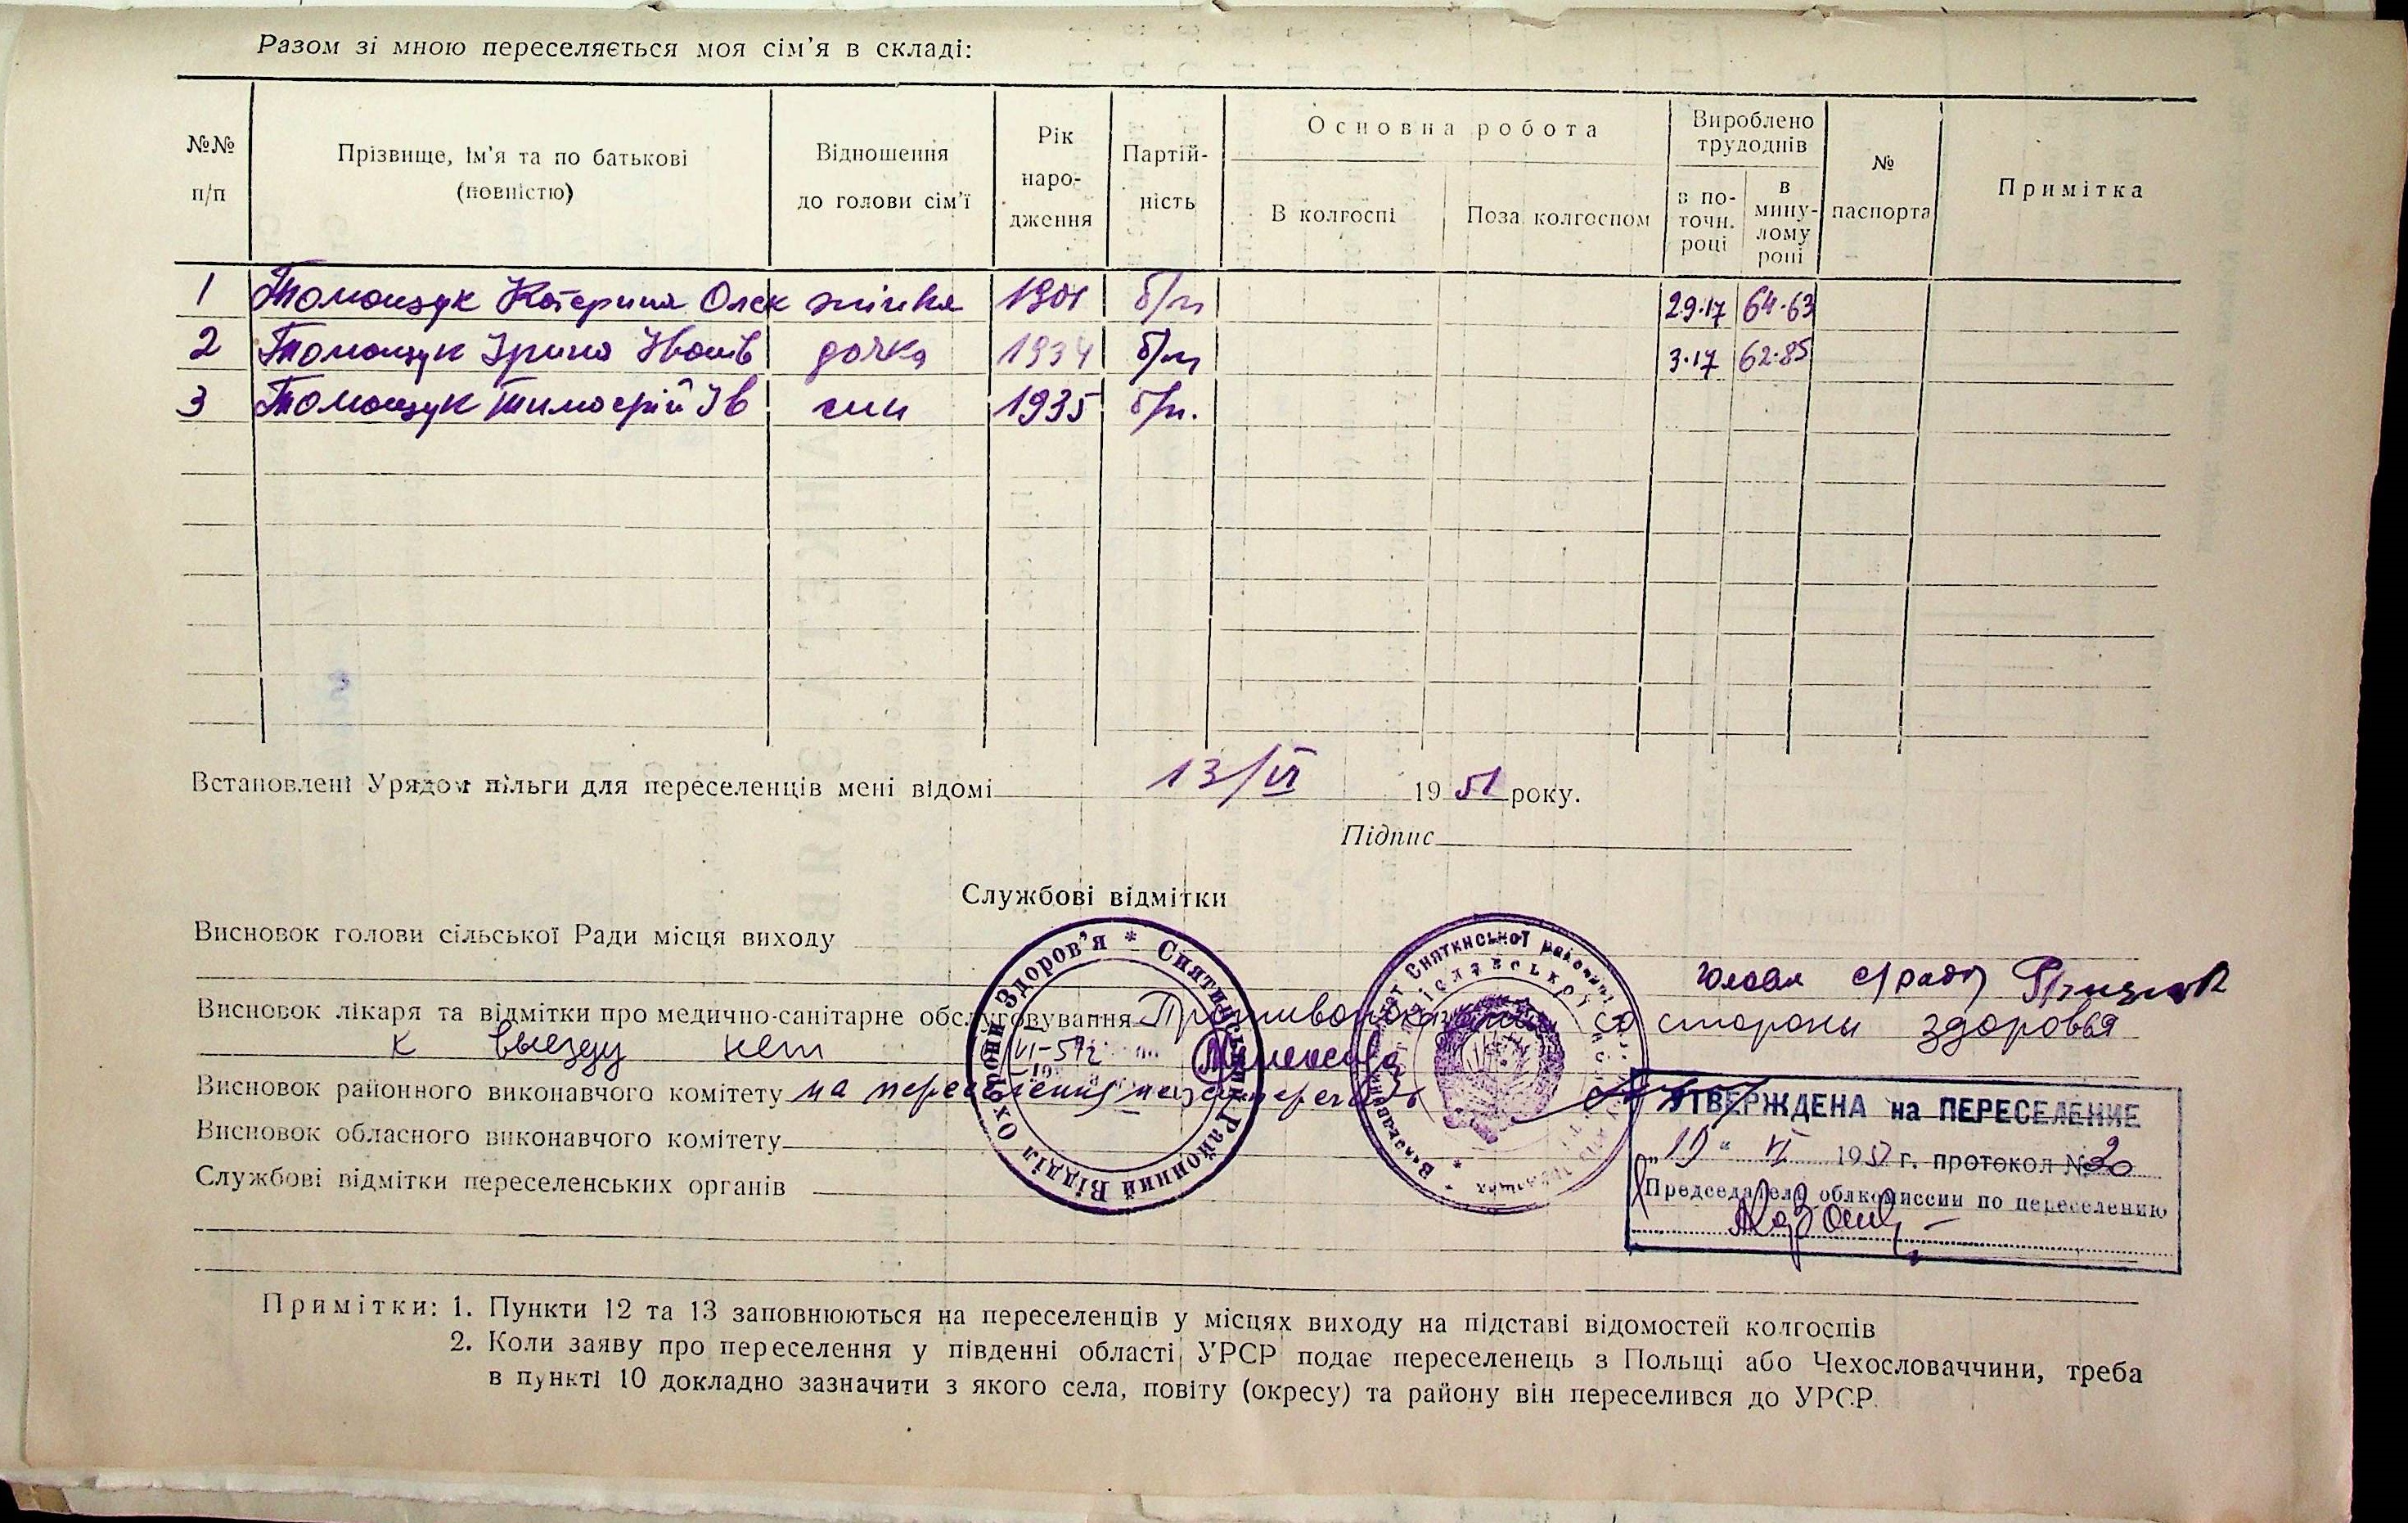 Разом зі мною переселяється моя сім'я в складі:
№№ п/п
Прізвище, Ім'я та по батькові (повністю)
Відношення до голови сім'ї
Рік народження
Партійність
Основна робота
В колгоспі
Поза колгоспом
Вироблено трудоднів
в поточн. році
в минулому році
№ паспорта
Примітка
1 Томащук Катерина Олек жінка 1901 б/п 29.17 64.63
2 Томащук Ірина Іванів дочка 1934 б/п 3.17 62.85
3 Томащук Тимофій Ів син 1935 б/п.
Встановлені Урядом пільги для переселенців мені відомі 13/VI 1951 року.
Підпис
Службові відмітки
Висновок голови сільської Ради місця виходу
Голова с/ради
Висновок лікаря та відмітки про медично-санітарне обслуговування Противопоказаний со стороны здоровья
к выезду нет
Висновок районного виконавчого комітету на переселення не заперечать
Висновок обласного виконавчого комітету
Службові відмітки переселенських органів
Снятинський Районний Відділ Охорони Здоров'я
Снятинської районної
УТВЕРЖДЕНА на ПЕРЕСЕЛЕНИЕ
„19“ VI 1951 г. протокол №20
Председатель облкомиссии по переселению
Примітки: 1. Пункти 12 та 13 заповнюються на переселенців у місцях виходу на підставі відомостей колгоспів
2. Коли заяву про переселення у південні області УРСР подає переселенець з Польщі або Чехословаччини, треба
в пункті 10 докладно зазначити з якого села, повіту (окресу) та району він переселився до УРСР.